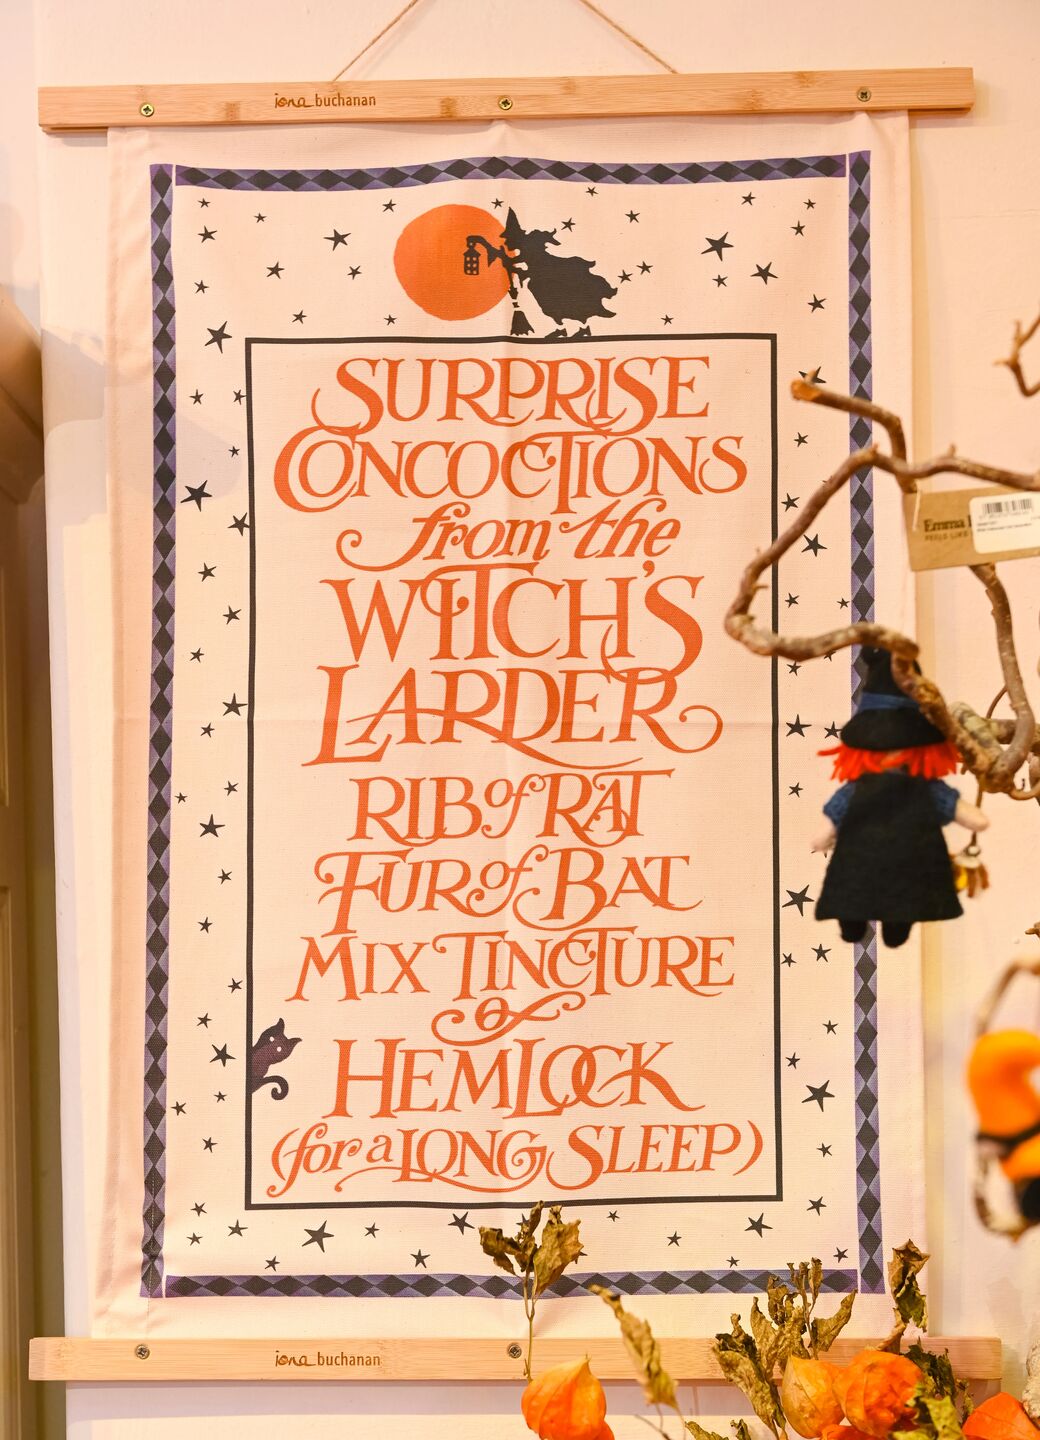 iona buchanan
SURPRISE
CONCOCTIONS
from the
WITCH'S
LARDER
RIB of RAT
FUR of BAT
MIX TINCTURE
of
HEMLOCK
(for a LONG SLEEP)
iona buchanan
Emma
FEELS LIKE